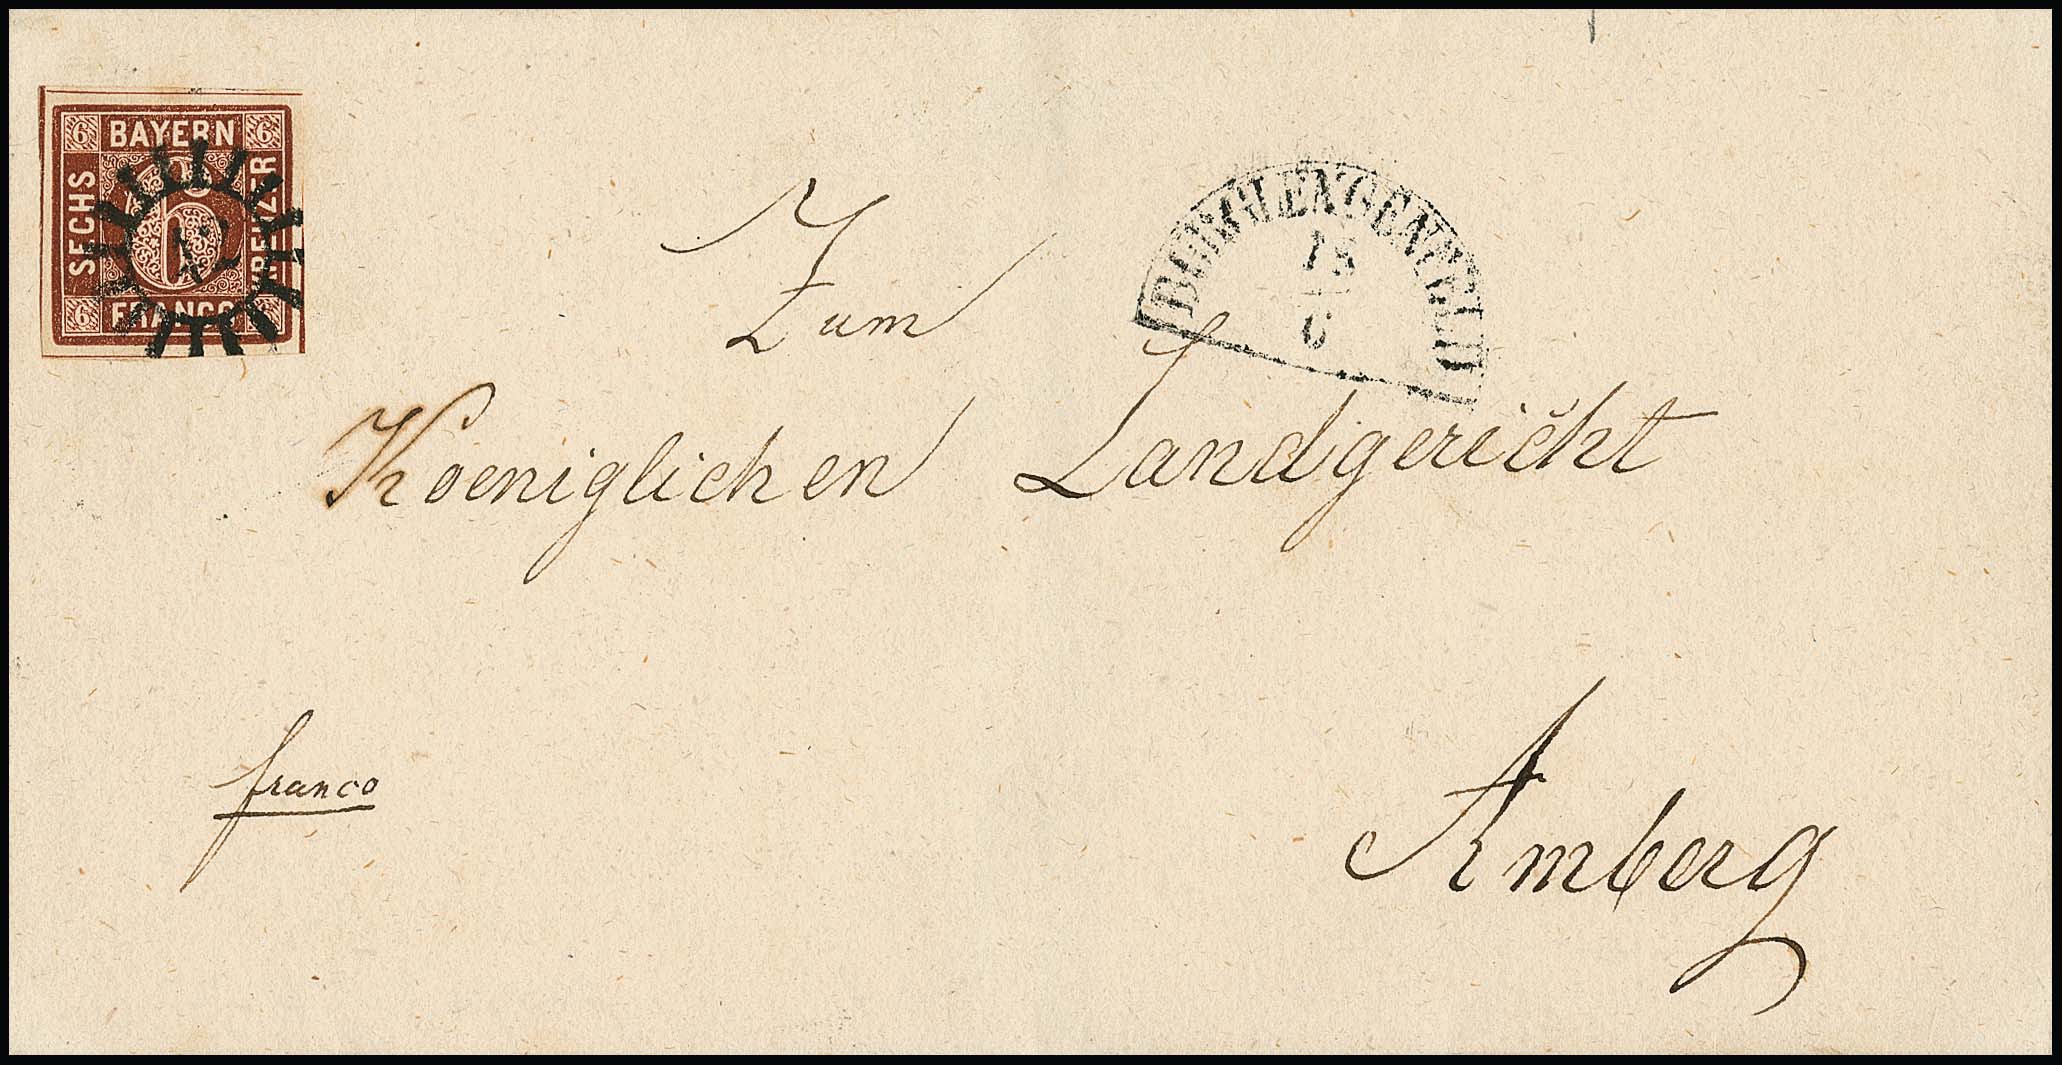 6 BAYERN 6
SECHS
6
KREUZER
6 FRANCO 6
BURGLENGENFELD
18
6
Zum
Koeniglichen Landgericht
franco
Amberg